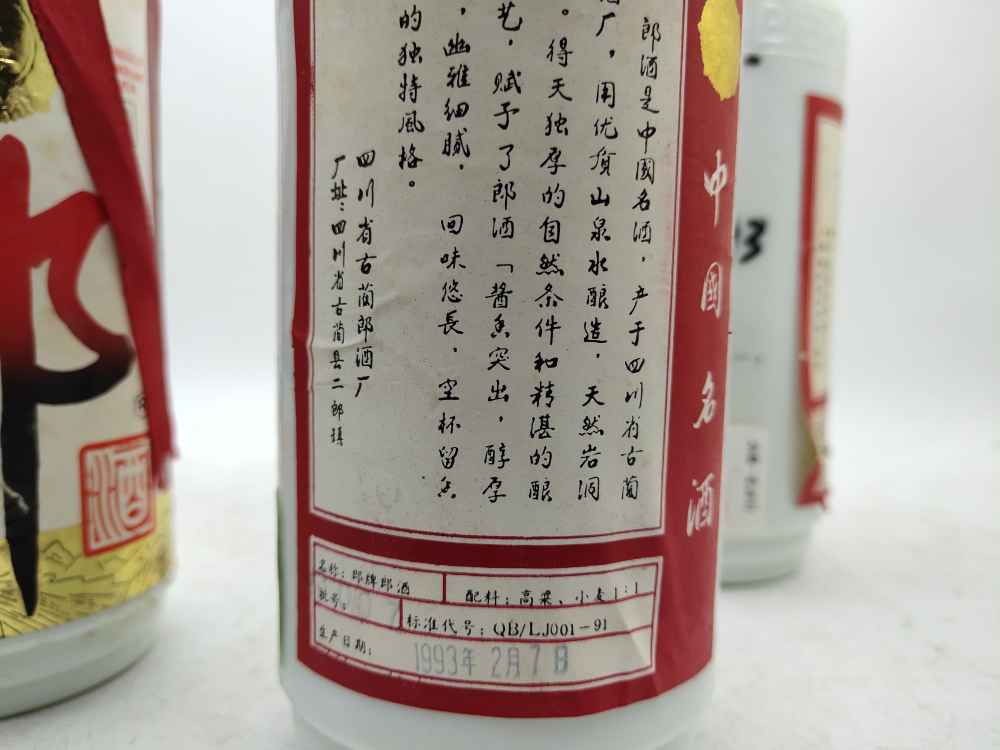 郎酒是中國名酒,产于四川省古蔺
酒厂,用优质山泉水酿造,天然岩洞
。得天独厚的自然条件和精湛的酿
艺,赋予了郎酒「酱香突出,醇厚
,幽雅细腻,回味悠長,空杯留香
的独特风格。
四川省古蔺郎酒厂
厂址:四川省古蔺县二郎镇
中國名酒
名称:郎牌郎酒
配料:高粱、小麦1:1
批号:
标准代号:QB/LJ001-91
生产日期:1993年2月7日
酒